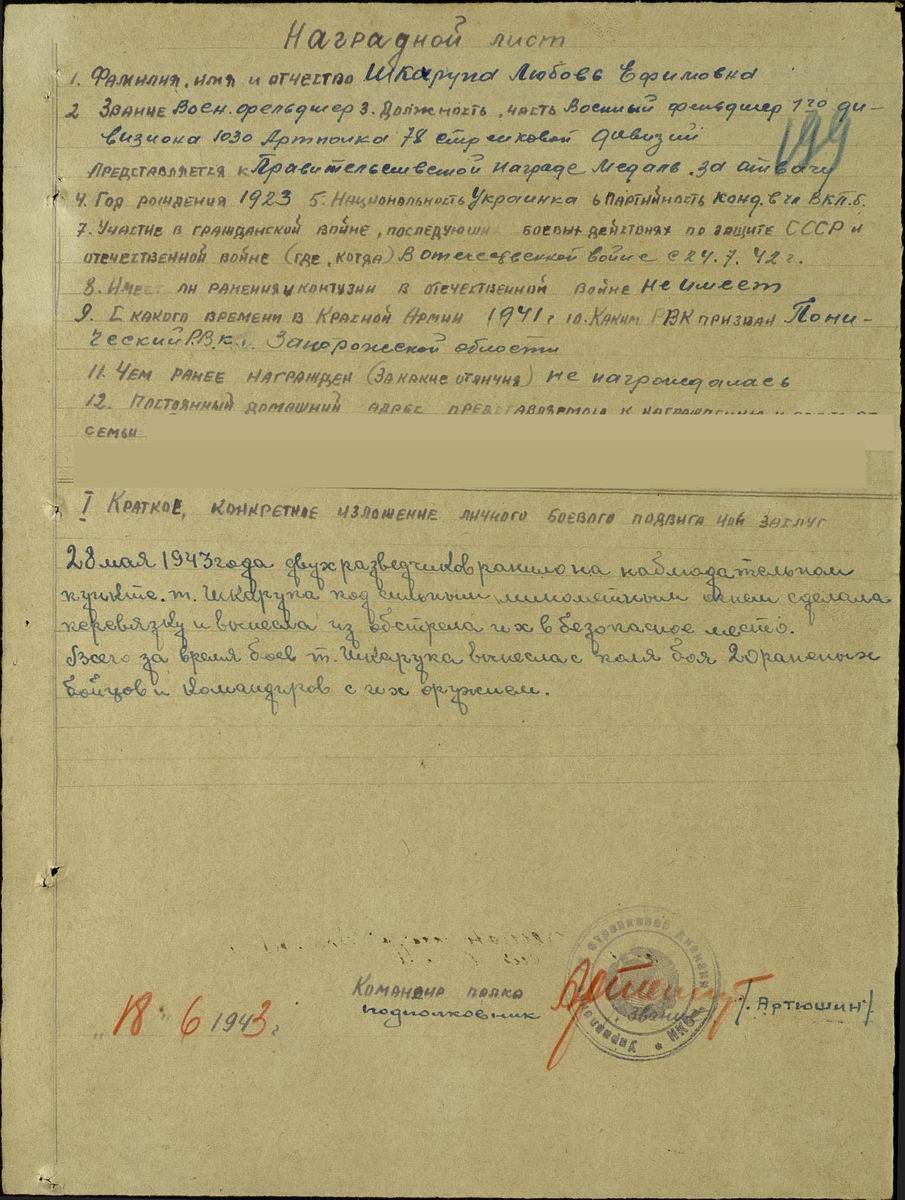 Наградной лист
1. Фамилия, имя и отчество Шкарупа Любовь Ефимовна
2 Звание Воен. фельдшер 3. Должность, часть Военный фельдшер 1го ди-
визиона 1030 Артполка 78 стрелковой дивизии
199
Представляется к Правительственной награде Медаль "За отвагу
4. Год рождения 1923 5. Национальность Украинка 6 Партийность Канд. в чл ВКП.б.
7. Участие в гражданской войне, последующих боевых действиях по защите СССР и
отечественной войне (где, когда) В отечественной войне с 24.7.42 г.
8. Имеет ли ранения и контузии в отечественной войне не имеет
9. С какого времени в Красной Армии 1941 г 10. Каким РВК призван
ческий Р.В.К. Запорожской области
11. Чем ранее награжден (за какие отличия) не награждалась
12. Постоянный домашний адрес представляемого к награждению и
семьи
I Краткое, конкретное изложение личного боевого подвига или заслуг
28 мая 1943 года двух разведчиков ранило на наблюдательном
пункте. т. Шкарупа под сильным минометным огнем сделала
перевязку и вынесла из обстрела их в безопасное место.
Всего за время боев т. Шкарупа вынесла с поля боя 20 раненых
бойцов и командиров с их оружием.
стрелковой дивизии
Командир полка
подполковник /Артюшин/
"18" 6 1943 г